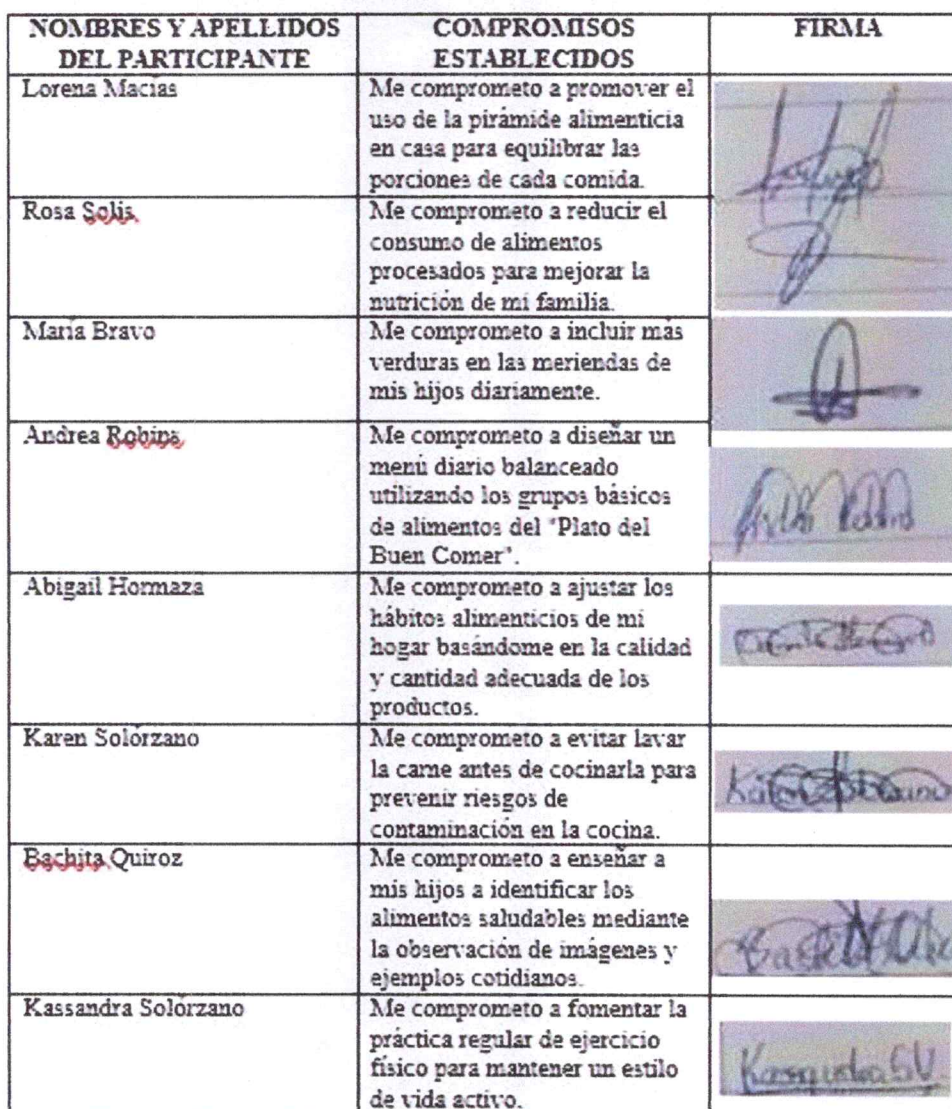 NOMBRES Y APELLIDOS
DEL PARTICIPANTE
COMPROMISOS
ESTABLECIDOS
FIRMA
Lorena Macías
Me comprometo a promover el
uso de la pirámide alimenticia
en casa para equilibrar las
porciones de cada comida.
Rosa Solis
Me comprometo a reducir el
consumo de alimentos
procesados para mejorar la
nutrición de mi familia.
María Bravo
Me comprometo a incluir más
verduras en las meriendas de
mis hijos diariamente.
Andrea Robins
Me comprometo a diseñar un
menú diario balanceado
utilizando los grupos básicos
de alimentos del "Plato del
Buen Comer".
Abigail Hormaza
Me comprometo a ajustar los
hábitos alimenticios de mi
hogar basándome en la calidad
y cantidad adecuada de los
productos.
Karen Solórzano
Me comprometo a evitar lavar
la carne antes de cocinarla para
prevenir riesgos de
contaminación en la cocina.
Bachita Quiroz
Me comprometo a enseñar a
mis hijos a identificar los
alimentos saludables mediante
la observación de imágenes y
ejemplos cotidianos.
Kassandra Solórzano
Me comprometo a fomentar la
práctica regular de ejercicio
físico para mantener un estilo
de vida activo.